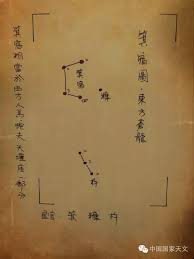 箕宿圖·東方蒼龍
箕宿
糠
杵
箕宿相當於西方人馬、蛇夫、天壇座一部分
星官：箕 糠 杵
中国国家天文